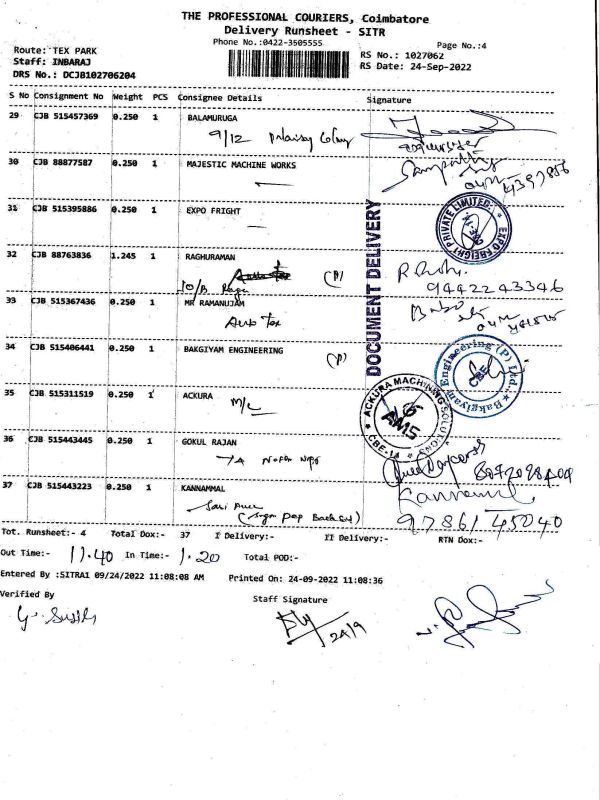 THE PROFESSIONAL COURIERS, Coimbatore
Delivery Runsheet - SITR
Phone No.:0422-3505555
Page No.:4
Route: TEX PARK
Staff: INBARAJ
DRS No.: DCJB102706204
RS No.: 1027062
RS Date: 24-Sep-2022
S No Consignment No Weight PCS Consignee Details Signature
29 CJB 515457369 0.250 1 BALAMURUGA
9/12
30 CJB 88877587 0.250 1 MAJESTIC MACHINE WORKS
31 CJB 515395886 0.250 1 EXPO FRIGHT
EXPO FREIGHT PRIVATE LIMITED
DOCUMENT DELIVERY
32 CJB 88763836 1.245 1 RAGHURAMAN
(P)
9442243346
33 CJB 515367436 0.250 1 MR RAMANUJAM
Auto Tex
34 CJB 515406441 0.250 1 BAKGIYAM ENGINEERING
(P)
Bakgiyam Engineering (P) Ltd.,
CBE
35 CJB 515311519 0.250 1 ACKURA
M/C
ACKURA MACHINING SOLUTIONS
AMS
CBE-14
36 CJB 515443445 0.250 1 GOKUL RAJAN
37 CJB 515443223 0.250 1 KANNAMMAL
Kannammal
97861 45040
Tot. Runsheet:- 4 Total Dox:- 37 I Delivery:- II Delivery:- RTN Dox:-
Out Time:- 11.40 In Time:- 1.20 Total POD:-
Entered By :SITRA1 09/24/2022 11:08:08 AM Printed On: 24-09-2022 11:08:36
Verified By
Staff Signature
24/9